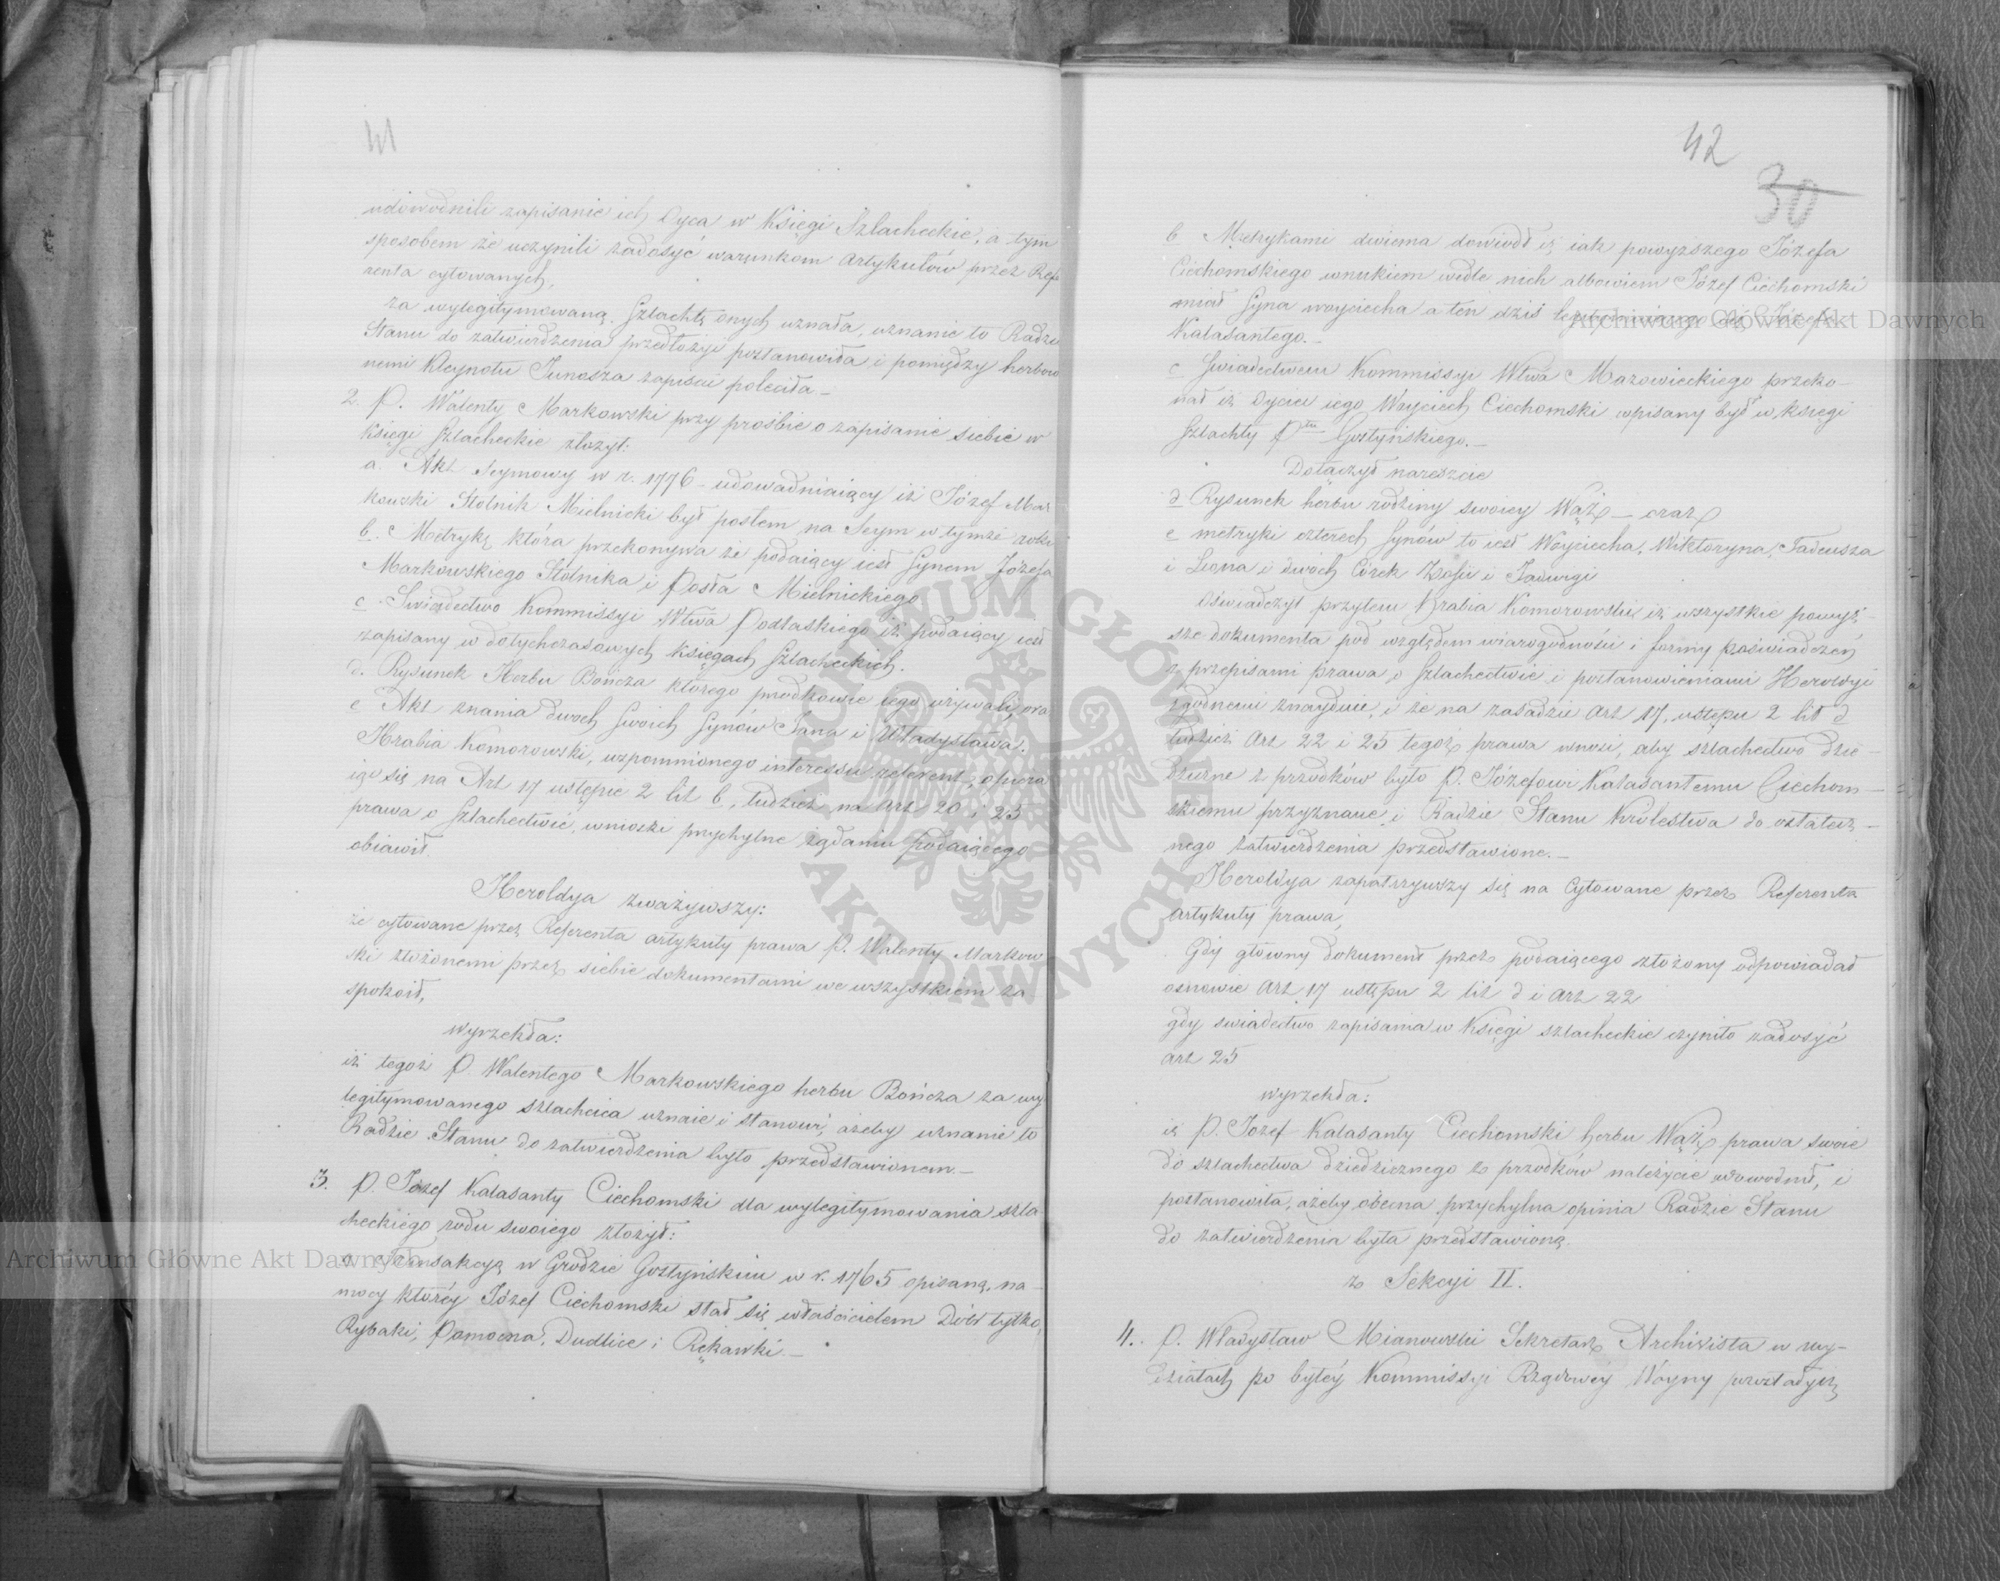 41
udowodnili zapisanie ich Oyca w Księgi Szlacheckie, a tym
sposobem że uczynili zadosyć warunkom Artykułów przez Refe
renta cytowanych,
za wylegitymowaną Szlachtę onych uznała, uznanie to Radzie
Stanu do zatwierdzenia przedłożyć postanowiła i pomiędzy herbow
nemi Kleynotu Junosza zapisać poleciła —
2. P. Walenty Markowski przy prośbie o zapisanie siebie w
Księgi Szlacheckie złożył:
a. Akt Seymowy w r. 1776 — udowadniaiący iż Józef Mar
kowski Stolnik Mielnicki był posłem na Seym w tymże roku
b. Metrykę która przekonywa że podaiący iest Synem Józefa
Markowskiego Stolnika i Posła Mielnickiego
c. Swiadectwo Kommissyi Wtwa Podlaskiego iż podaiący iest
zapisany w dotychczasowych Księgach Szlacheckich.
d. Rysunek Herbu Bończa którego przodkowie iego używali, oraz
e Akt znania dwoch Swoich Synów Jana i Władysława.
Hrabia Komorowski, wzpomnionego interessu referent, opiera
iąc się na Art 17 ustępie 2 lit b, tudzież na Art 20 i 25
prawa o Szlachectwie, wnioski przychylne żądaniu podaiącego
obiawił.
Heroldya zważywszy:
że cytowane przez Referenta artykuły prawa P. Walenty Markow
ski złożonemi przez siebie dokumentami we wszystkiem za
spokoił,
wyrzekła:
iż tegoż P. Walentego Markowskiego herbu Bończa za wy
legitymowanego szlachcica uznaie i stanowi, ażeby uznanie to
Radzie Stanu do zatwierdzenia było przedstawionem —
3. P. Józef Kalasanty Ciechomski dla wylegitymowania szla
checkiego rodu swoiego złożył:
a Transakcyą w Grodzie Gostyńskim w r. 1765 opisaną, na
mocy któréy Józef Ciechomski stał się właścicielem Dóbr tylko,
Rybaki, Pomocna, Dudlice i Rękawki —
42
30
b Metrykami dwiema dowiódł iż iak powyższego Józefa
Ciechomskiego wnukiem wedle nich albowiem Józef Ciechomski
miał Syna Woyciecha a ten dziś legitymuiącego się Józefa
Kalasantego. —
c Swiadectwem Kommissyi Wtwa Mazowieckiego przeko-
nał iż Oyciec iego Woyciech Ciechomski wpisany był w księgi
Szlachty Ptu Gostyńskiego. —
Dołączył nareszcie
d Rysunek herbu rodziny swoiey Wąż — oraz
e metryki czterech Synów to iest Woyciecha, Wiktoryna, Tadeusza
i Leona i dwóch Córek Zofii i Jadwigi
Oświadczył przytem Hrabia Komorowski iż wszystkie powyż-
sze dokumenta pod względem wiarogodności i formy poświadczeń
z przepisami prawa o Szlachectwie i postanowieniami Heroldyi
zgodnemi znayduie, i że na zasadzie Art 17, ustępu 2 lit d
tudzież Art 22 i 25 tegoż prawa wnosi, aby szlachectwo dzie-
dziczne z przodków było P. Józefowi Kalasantemu Ciechom-
skiemu przyznane i Radzie Stanu Królestwa do ostatecz-
nego zatwierdzenia przedstawione. —
Heroldya zapatrzywszy się na Cytowane przez Referenta
artykuły prawa,
Gdy główny dokument przez podaiącego złożony odpowiadał
osnowie Art 17 ustępu 2 lit d i Art 22
gdy swiadectwo zapisania w Księgi szlacheckie czyniło zadosyć
Art 25
wyrzekła:
iż P. Józef Kalasanty Ciechomski herbu Wąż prawa swoie
do szlachectwa dziedzicznego z przodków należycie udowodnił, i
postanowiła, ażeby obecna przychylna opinia Radzie Stanu
do zatwierdzenia była przedstawioną.
z Sekcyi II.
4. P. Władysław Mianowski Sekretarz Archiwista w wy-
działach po byłéy Kommissyi Rządowey Woyny pozostałych
Archiwum Główne Akt Dawnych
Archiwum Główne Akt Dawnych
ARCHIWUM GŁÓWNE AKT DAWNYCH